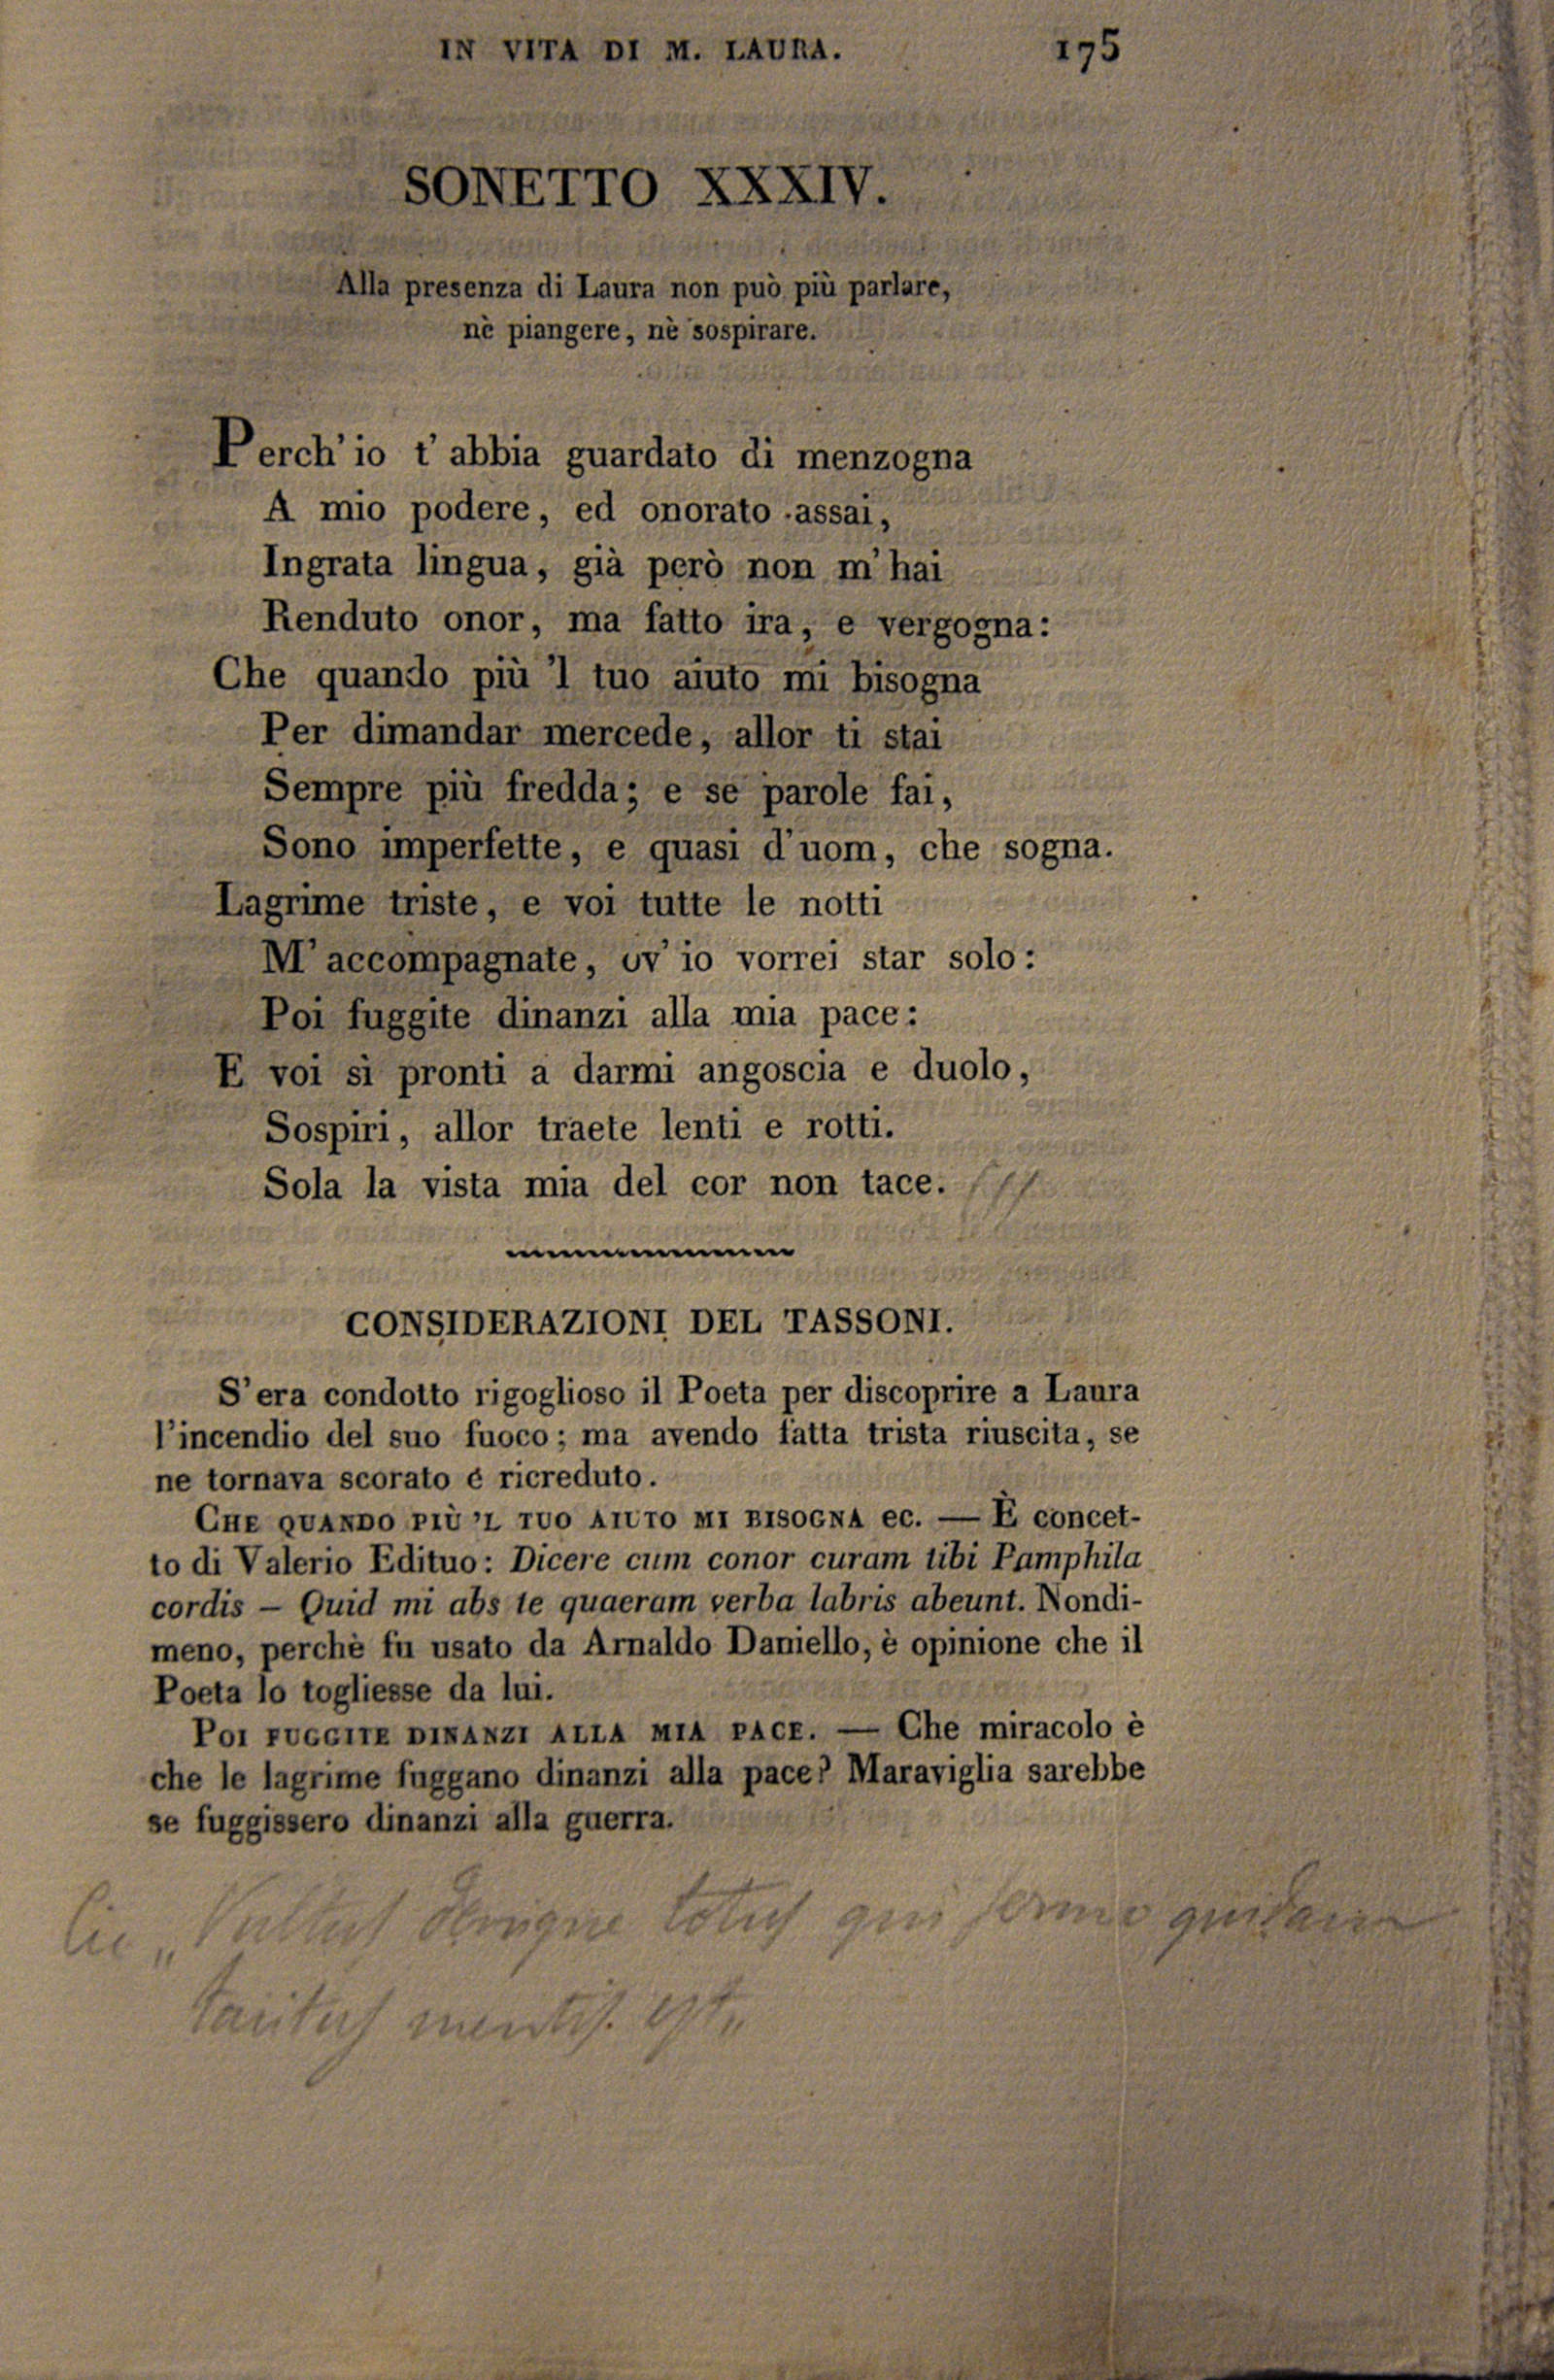 IN VITA DI M. LAURA. 175
SONETTO XXXIV.
Alla presenza di Laura non può più parlare,
nè piangere, nè sospirare.
Perch' io t' abbia guardato di menzogna
A mio podere, ed onorato assai,
Ingrata lingua, già però non m' hai
Renduto onor, ma fatto ira, e vergogna:
Che quando più 'l tuo aiuto mi bisogna
Per dimandar mercede, allor ti stai
Sempre più fredda; e se parole fai,
Sono imperfette, e quasi d' uom, che sogna.
Lagrime triste, e voi tutte le notti
M' accompagnate, ov' io vorrei star solo:
Poi fuggite dinanzi alla mia pace:
E voi sì pronti a darmi angoscia e duolo,
Sospiri, allor traete lenti e rotti.
Sola la vista mia del cor non tace.
CONSIDERAZIONI DEL TASSONI.
S' era condotto rigoglioso il Poeta per discoprire a Laura
l'incendio del suo fuoco; ma avendo fatta trista riuscita, se
ne tornava scorato e ricreduto.
CHE QUANDO PIÙ 'L TUO AIUTO MI BISOGNA ec. — È concet-
to di Valerio Edituo: Dicere cum conor curam tibi Pamphila
cordis – Quid mi abs te quaeram verba labris abeunt. Nondi-
meno, perchè fu usato da Arnaldo Daniello, è opinione che il
Poeta lo togliesse da lui.
POI FUGGITE DINANZI ALLA MIA PACE. — Che miracolo è
che le lagrime fuggano dinanzi alla pace? Maraviglia sarebbe
se fuggissero dinanzi alla guerra.
Cic „ Vultus denique totus qui sermo quidam
tacitus mentis est „